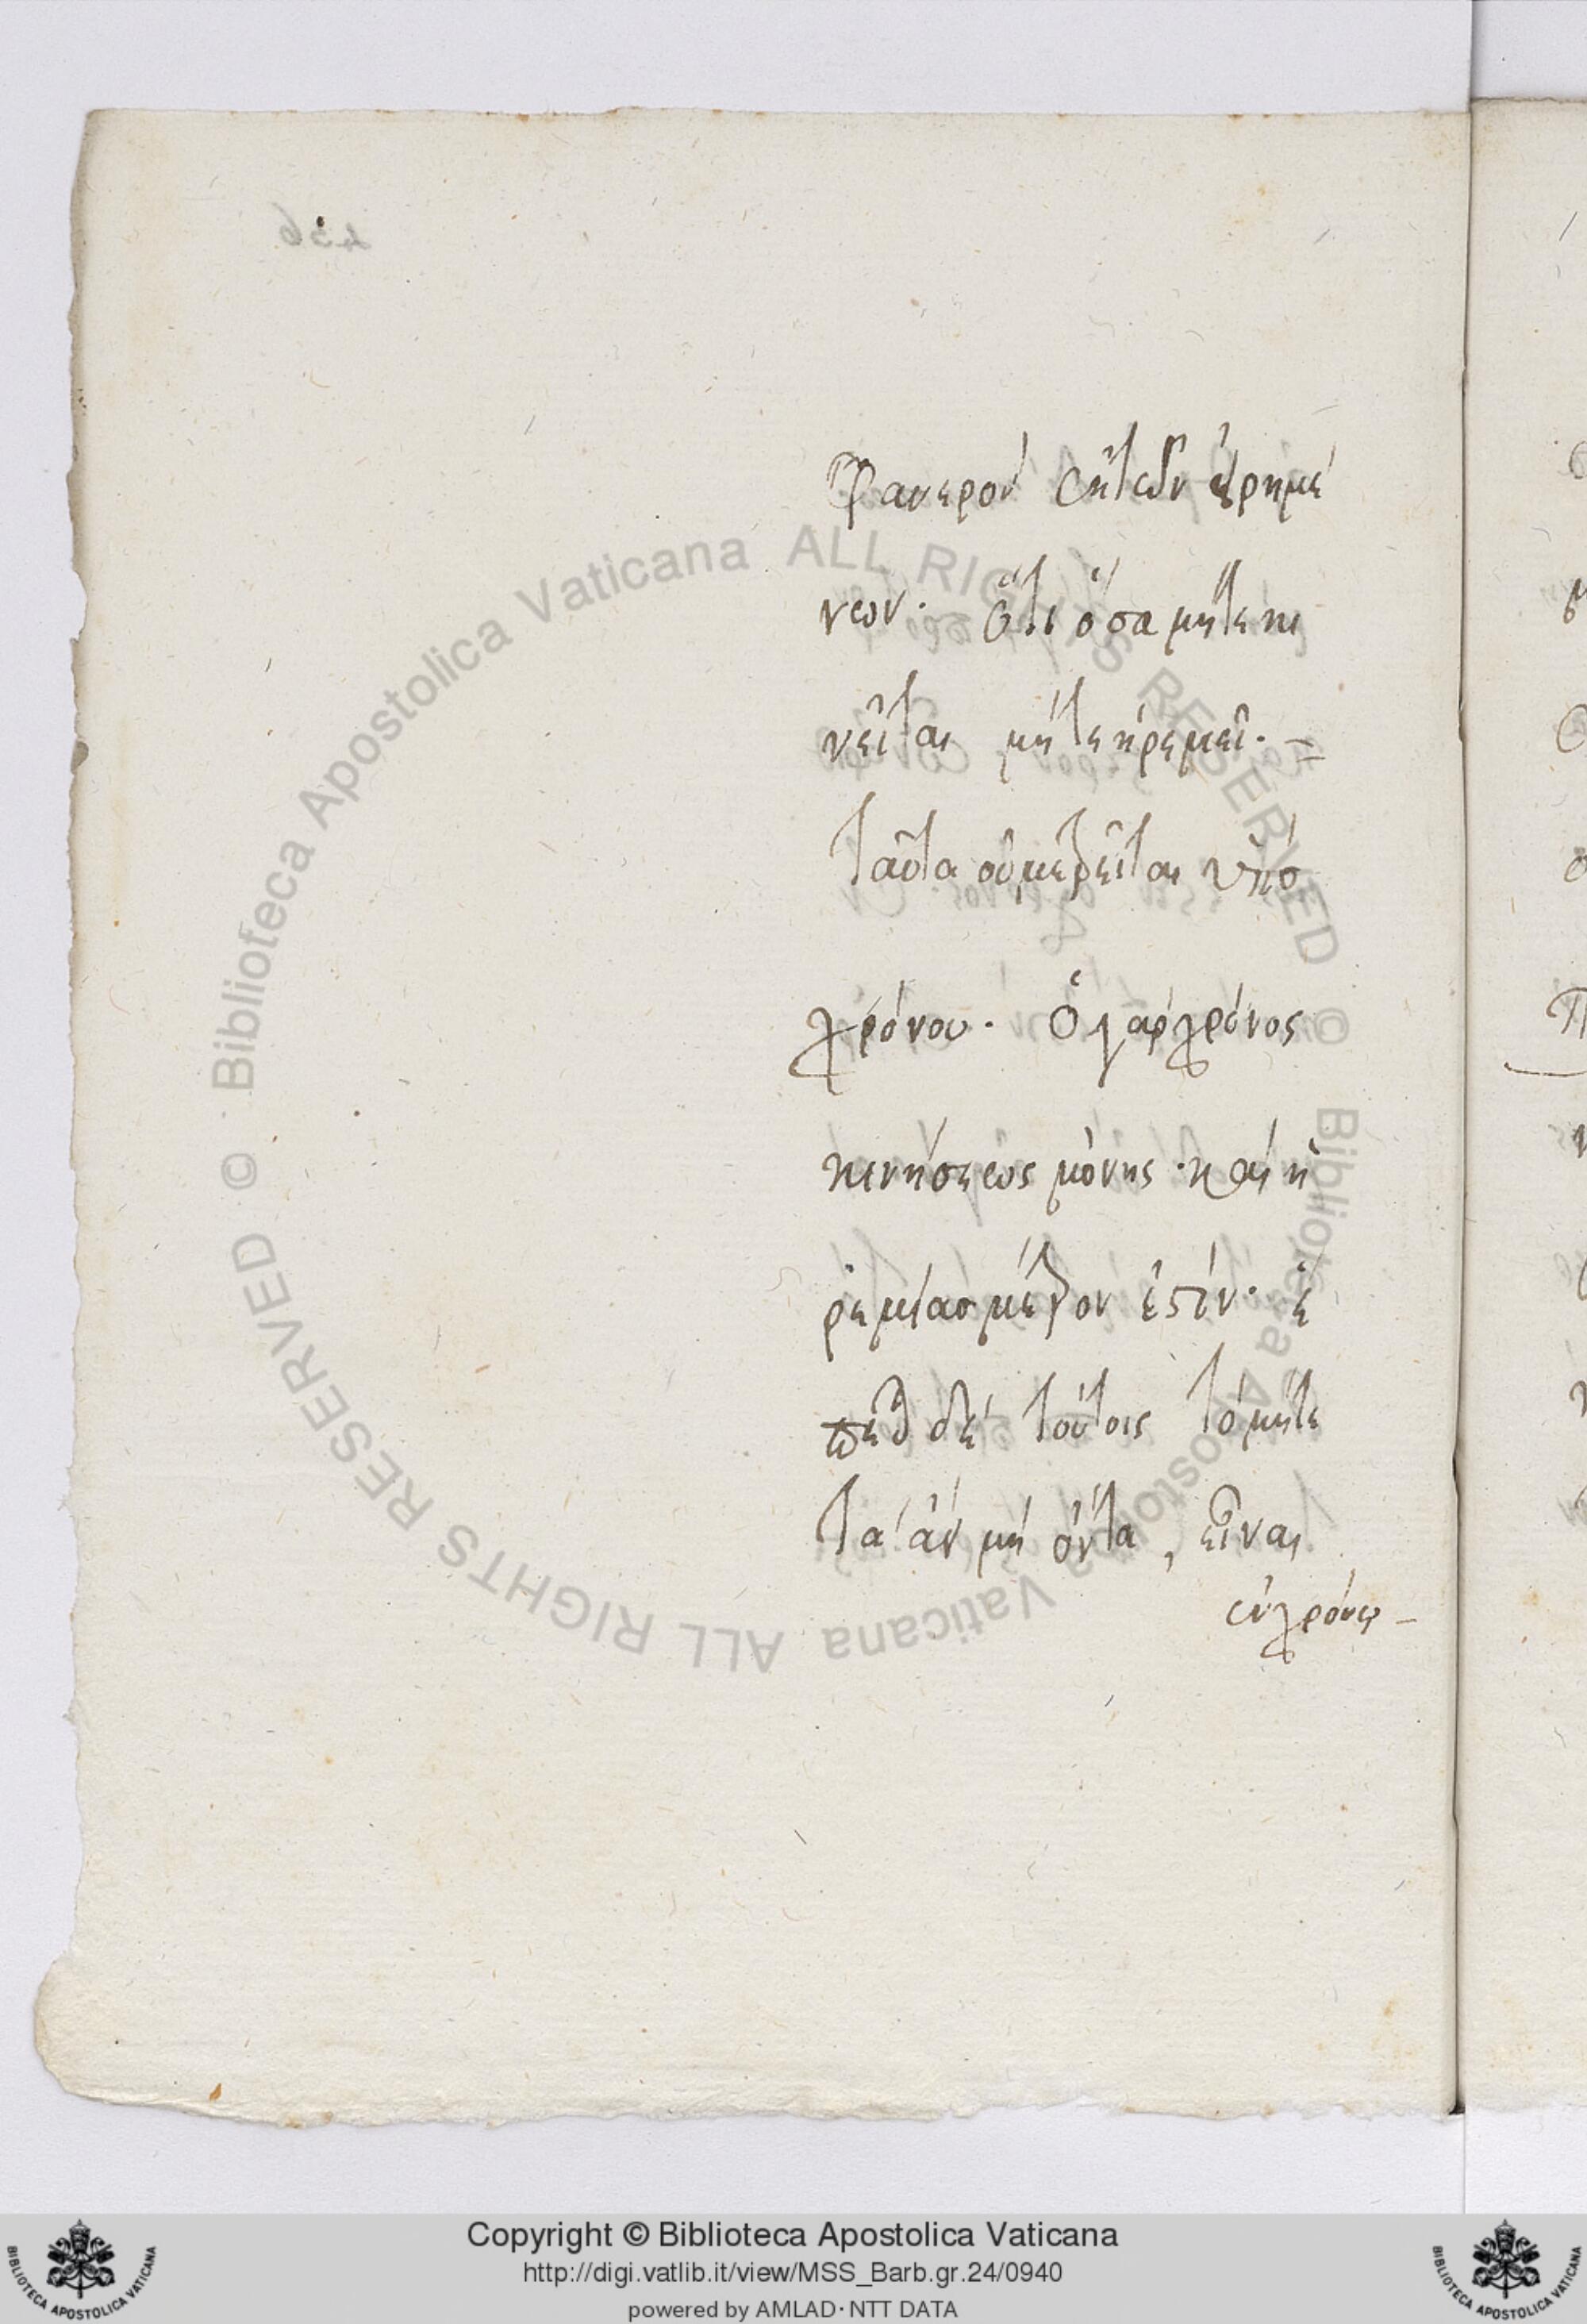 436
Φανερὸν ἐκ τῶν εἰρημέ
νων· ὅτι ὅσα μήτε κι
νεῖται μήτε ἠρεμεῖ·
ταῦτα οὐ μετρεῖται ὑπὸ
χρόνου· ὁ γὰρ χρόνος
κινήσεως μόνης· καὶ ἠ
ρεμίασ μέτρον ἐστίν· ἐ
πεὶ δὲ τούτοις τὸ μήτε
τὰ ἀν μὴ ὄντα, εἶναι
ἐν χρόνῳ
© Biblioteca Apostolica Vaticana ALL RIGHTS RESERVED © Biblioteca Apostolica Vaticana ALL RIGHTS RESERVED
Copyright © Biblioteca Apostolica Vaticana
http://digi.vatlib.it/view/MSS_Barb.gr.24/0940
powered by AMLAD · NTT DATA
BIBLIOTECA APOSTOLICA VATICANA
BIBLIOTECA APOSTOLICA VATICANA